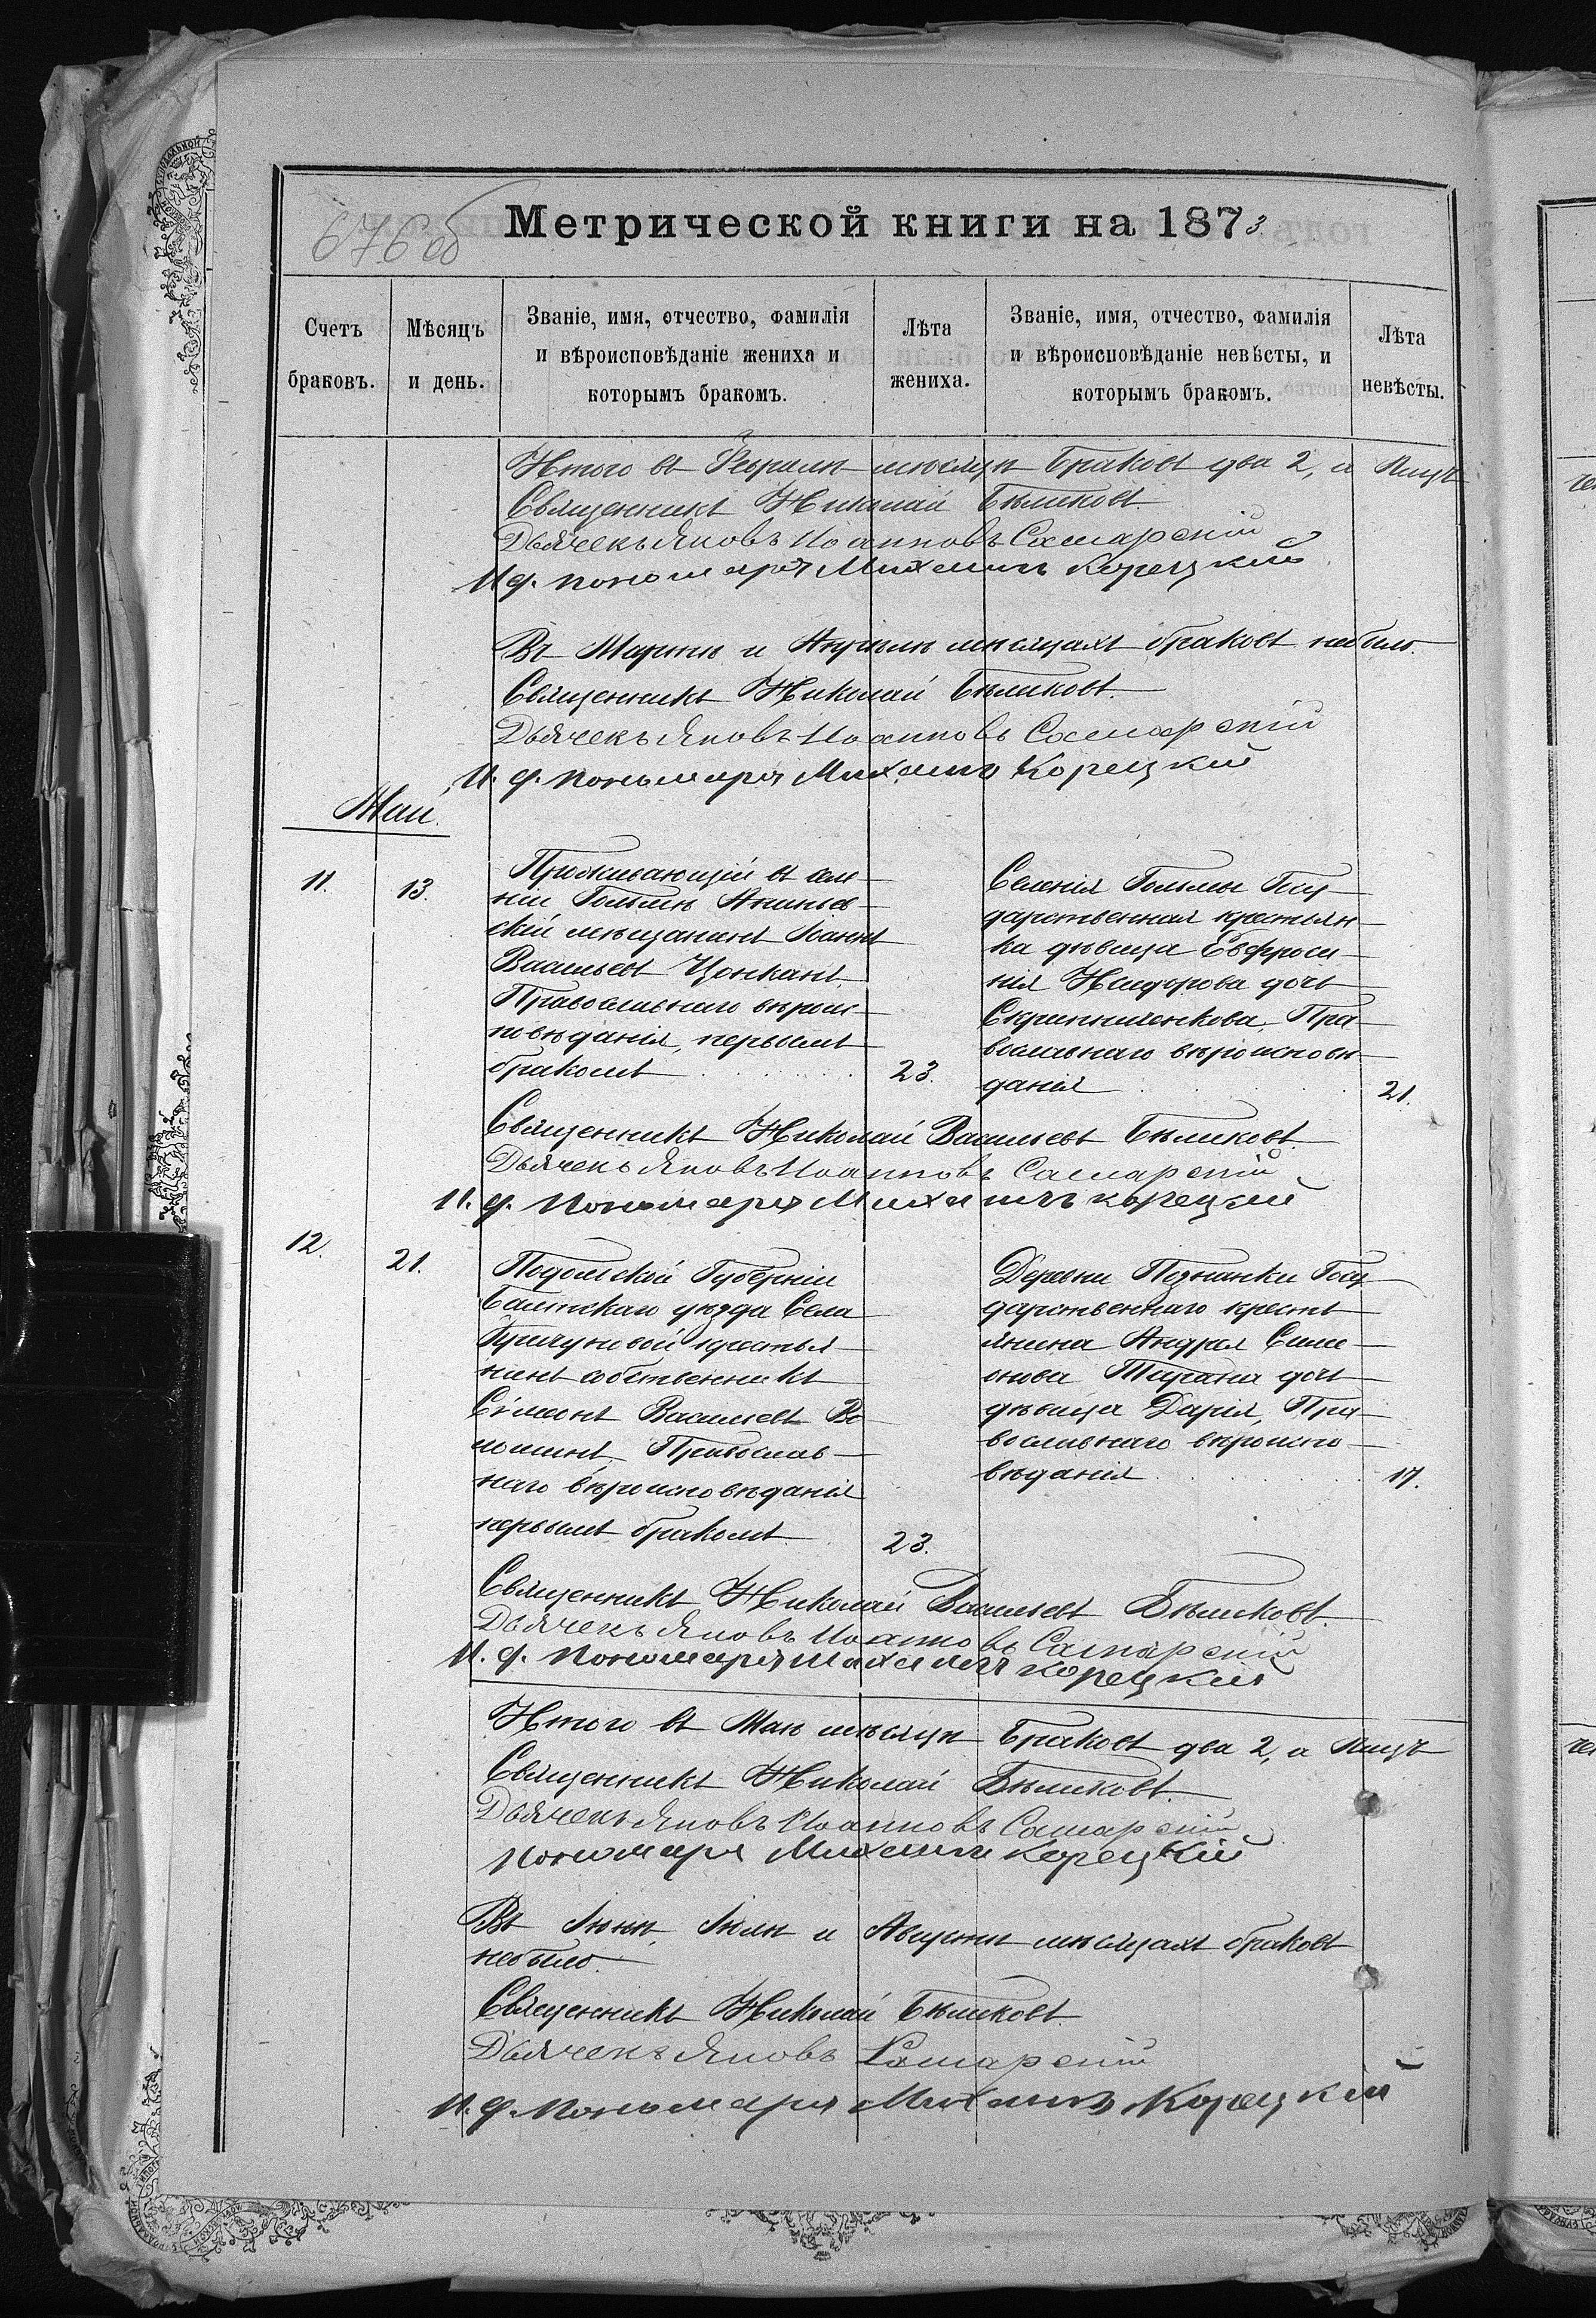 676 об
Метрической книги на 1873
Счетъ браковъ.
Мѣсяцъ и день.
Званіе, имя, отчество, фамилія и вѣроисповѣданіе жениха и которымъ бракомъ.
Лѣта жениха.
Званіе, имя, отчество, фамилія и вѣроисповѣданіе невѣсты, и которымъ бракомъ.
Лѣта невѣсты.
Итого въ Февралѣ мѣсяцѣ браковъ два 2, а лицъ
Священникъ Николай Бѣликовъ.
Дьячекъ Яковъ Іоанновъ Самарскій
И. ф. пономаря Михаилъ Корецкій
Въ Мартѣ и Апрѣлѣ мѣсяцахъ браковъ небыло.
Священникъ Николай Бѣликовъ.
Дьячекъ Яковъ Іоанновъ Самарскій
И. ф. пономаря Михаилъ Корецкій
Май.
11.
13.
Проживающій въ селе-
ніи Гольмѣ Ананьев-
скій мѣщанинъ Іоаннъ
Васильевъ Цонканъ
Православнаго вѣроис-
повѣданія, первымъ
бракомъ
23.
Селенія Гольмы Госу-
дарственная крестьян-
ка дѣвица Евфроси-
нія дочь
Пра-
вославнаго вѣроисповѣ-
данія
21.
Священникъ Николай Васильевъ Бѣликовъ.
Дьячекъ Яковъ Іоанновъ Самарскій
И. ф. пономаря Михаилъ Корецкій
12.
21.
Подольской Губерніи
Балтскаго уѣзда Села
крестья-
нинъ собственникъ
Сімеонъ Васильевъ Во-
лошинъ, Православ-
наго вѣроисповѣданія
первымъ бракомъ
23.
Деревни Познанки Госу-
дарственнаго кресть-
янина Андрея Симе-
онова дочь
дѣвица Дарія, Пра-
вославнаго вѣроиспо-
вѣданія
17.
Священникъ Николай Васильевъ Бѣликовъ.
Дьячекъ Яковъ Іоанновъ Самарскій
И. ф. пономаря Михаилъ Корецкій
Итого въ Маѣ мѣсяцѣ браковъ два 2, а лицъ
Священникъ Николай Бѣликовъ.
Дьячекъ Яковъ Іоанновъ Самарскій
пономаря Михаилъ Корецкій
Въ Іюнѣ, Іюлѣ и Августѣ мѣсяцахъ браковъ
небыло.
Священникъ Николай Бѣликовъ
Дьячекъ Яковъ Самарскій
И. ф. пономаря Михаилъ Корецкій